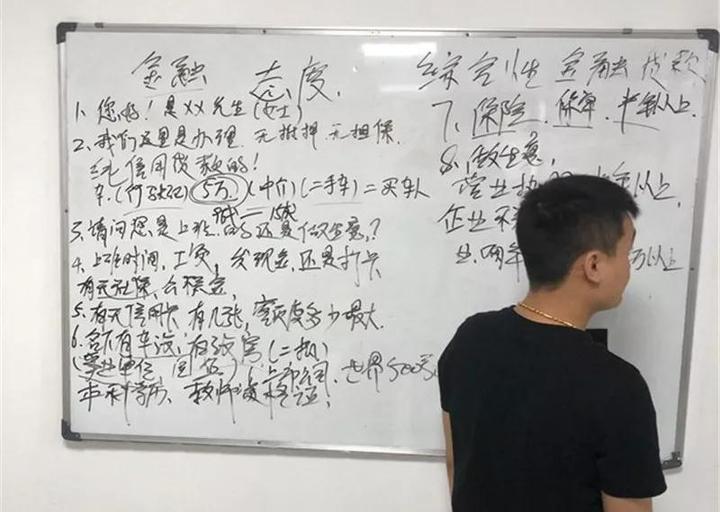 金融 态度.
综合性金融贷款
1、您好！是XX先生(女士)
2、我们这里是办理.无抵押.无担保.
纯信用贷款的！
车.(行驶证) 5万 (中介)(二手车)=买车人
3、请问您是上班.的还是做生意.？
4、上班时间.工资，发现金.还是打卡
有无社保,公积金,
5、有无信用卡 有几张，额度多少最大.
6、名下有车没,有没房(二抵)
(事业单位 国企)(上市公司.世界500
本科学历、教师资格证,
7、保险.保单.半年以上.
8、做生意,
营业执照 年以上,
企业
以上